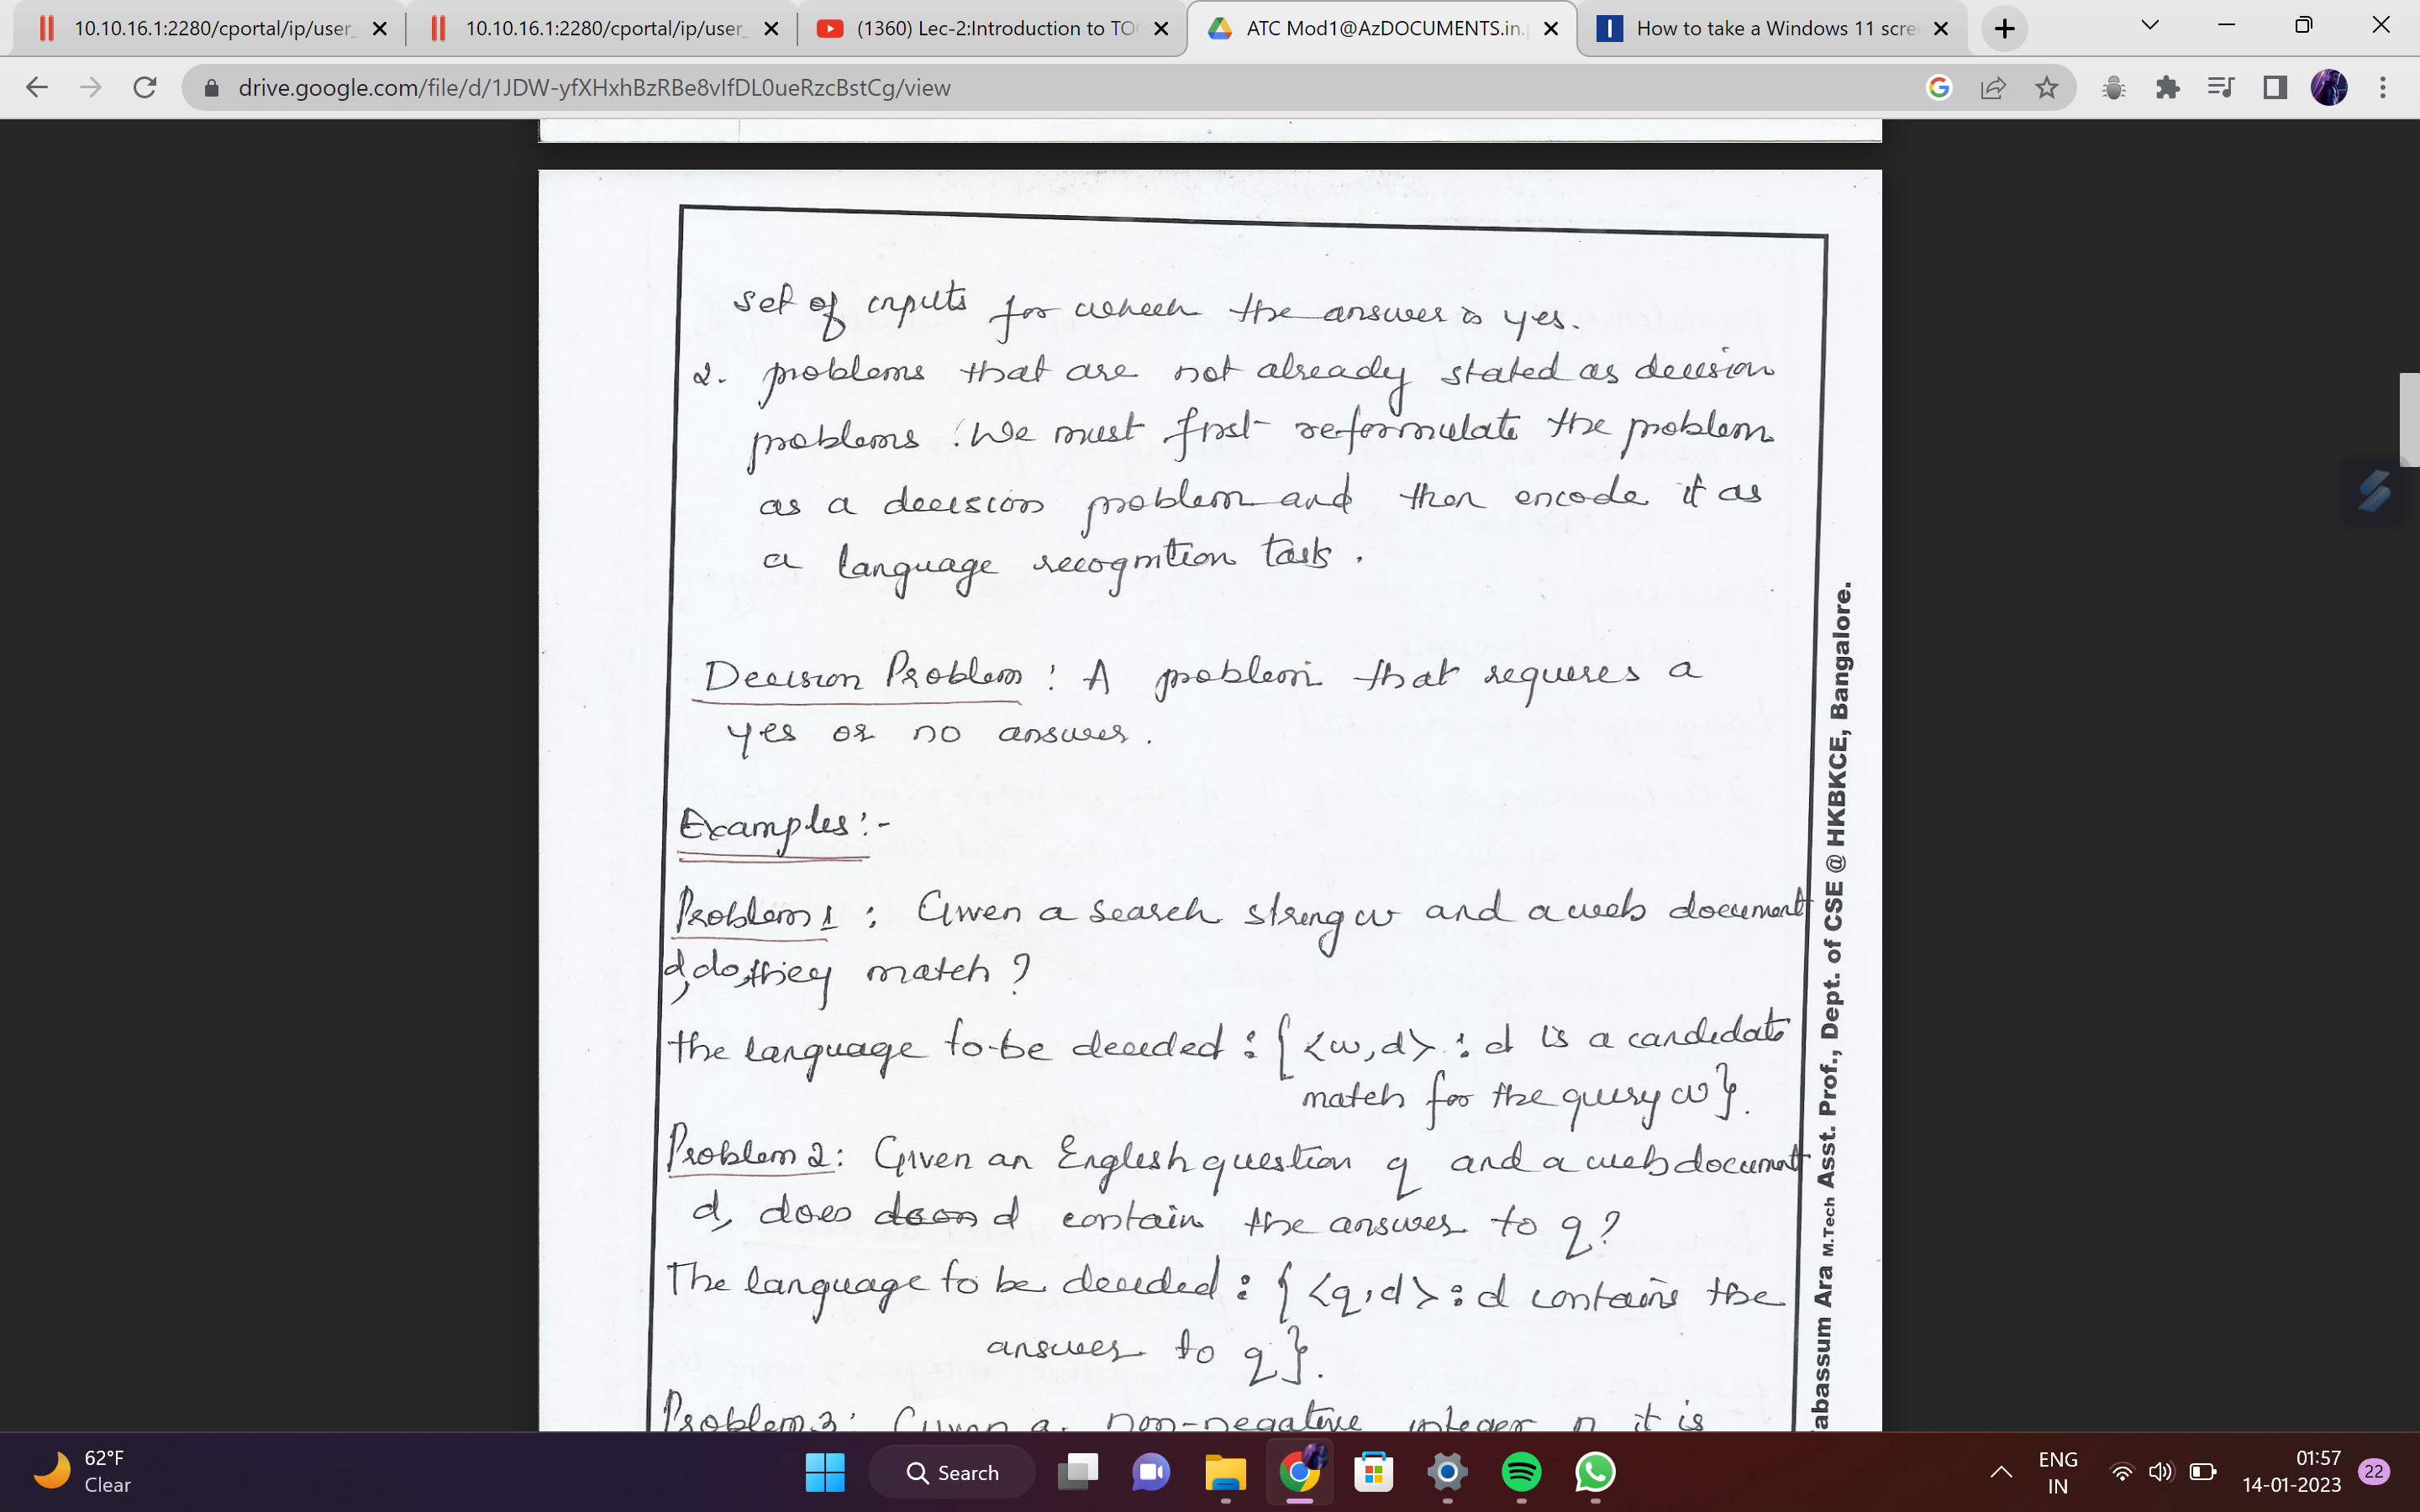 10.10.16.1:2280/cportal/ip/user_
10.10.16.1:2280/cportal/ip/user_
(1360) Lec-2:Introduction to TO
ATC Mod1@AzDOCUMENTS.in.
How to take a Windows 11 scre
drive.google.com/file/d/1JDW-yfXHxhBzRBe8vIfDL0ueRzcBstCg/view
set of inputs for which the answer is yes.
2. problems that are not already stated as decision
problems. We must first reformulate the problem
as a decision problem and then encode it as
a language recognition task.
Decision Problem : A problem that requires a
yes or no answer.
Examples:-
Problem 1 : Given a search string w and a web document
d, do they match?
the language to be decided : {<w,d> : d is a candidate
match for the query w}.
Problem 2: Given an English question q and a web document
d, does d contain the answer to q?
The language to be decided : {<q,d> : d contains the
answer to q}.
Problem 3: Given a non-negative integer n it is
abassum Ara M.Tech Asst. Prof., Dept. of CSE @ HKBKCE, Bangalore.
62°F
Clear
Search
ENG
IN
01:57
14-01-2023
22